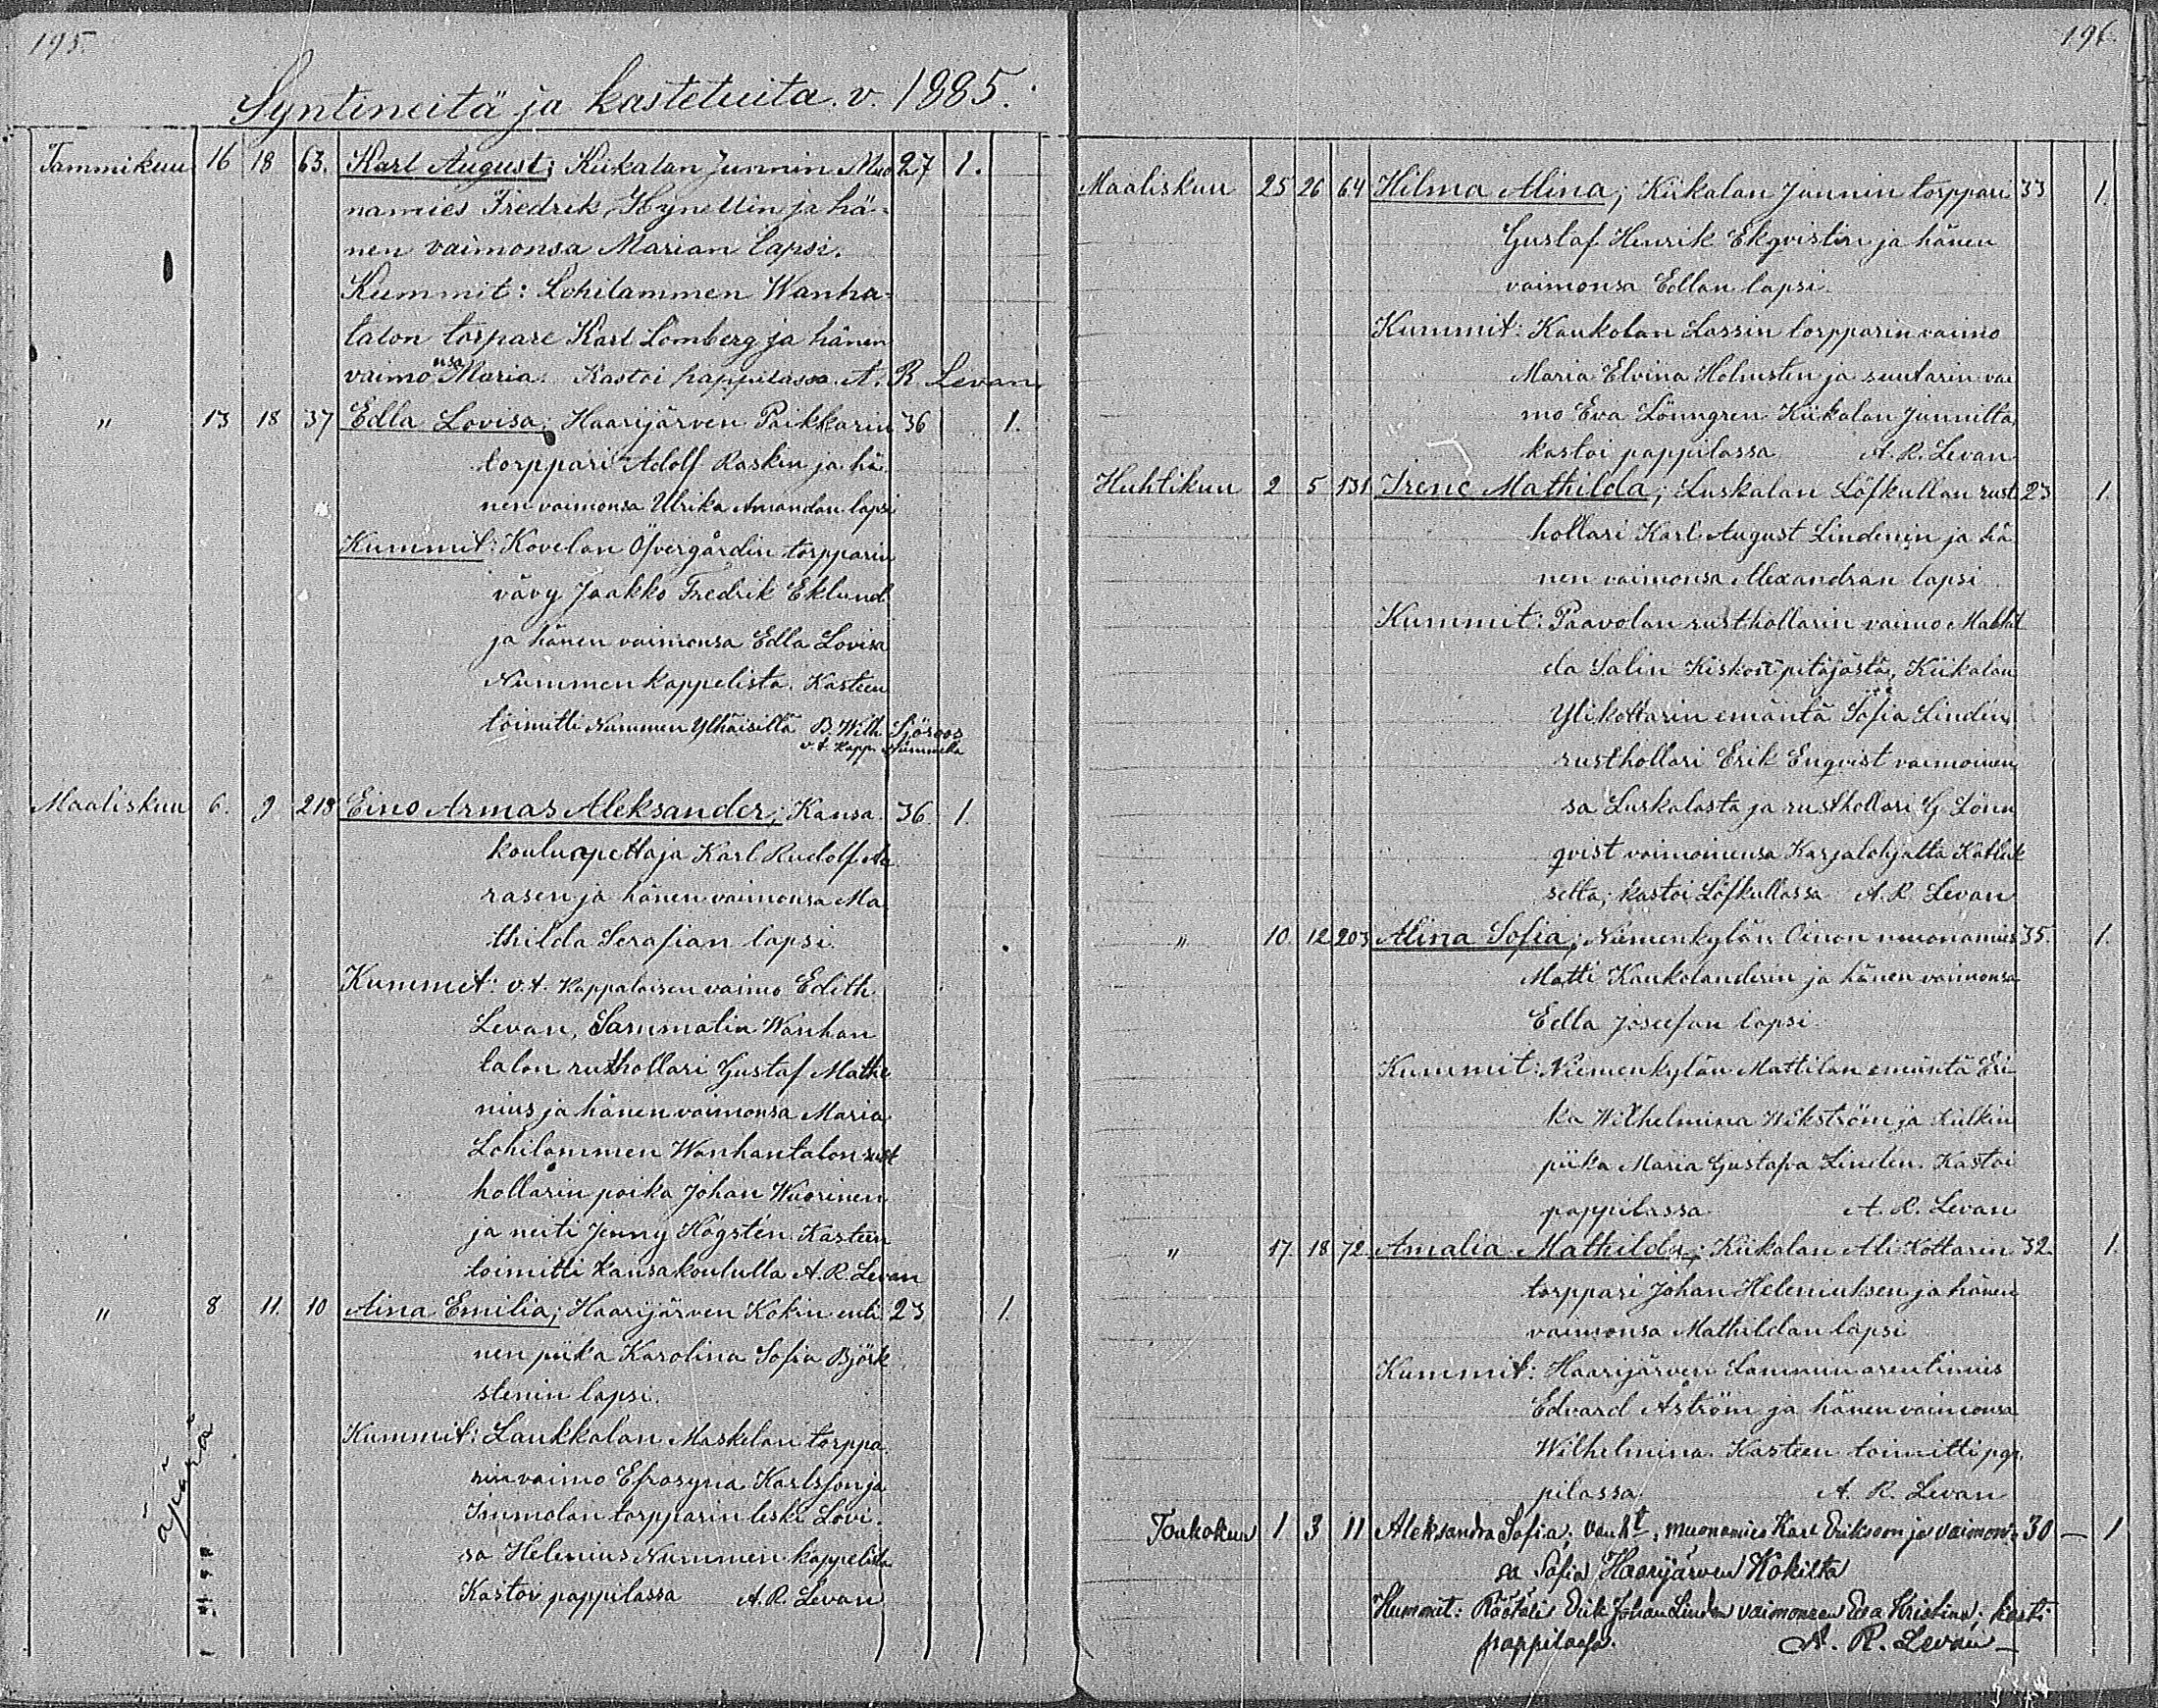 195.
Syntineitä ja kastetuita. v. 1885.
Tammikuu 16 18 63. Karl August; Kiikalan Junnin Muo 27 1.
namies Fredrik Hynellin ja hä-
nen vaimonsa Marian lapsi.
Kummit: Lohilammen Wanha-
talon torpare Karl Lomberg ja hänen
vaimonsa Maria. Kastoi pappilassa A. R. Levan.
" 13 18 37 Edla Lovisa; Haarijärven Paikkarin 36 1.
torppari Adolf Raskin ja hä
nen vaimonsa Ulrika Amandan lapsi
Kummit: Kovelan Öfvergårdin torpparin
vävy Jaakko Fredrik Eklund
ja hänen vaimonsa Edla Lovisa
Nummen kappelista. Kasteen
toimitti Nummen Ylhäisillä B. Wilh Sjöroos
v. t. Kapp. Nummella
Maaliskuu 6. 9 218 Eino Armas Aleksander; Kansa 36 1.
kouluopettaja Karl Rudolf
rasen ja hänen vaimonsa Ma
thilda Serafian lapsi.
Kummit: v.t. Kappalaisen vaimo Edith
Levan, Sammatin Wanhan
talon rusthollari Gustaf Mathe
nius ja hänen vaimonsa Maria
Lohilammen Wanhantalon rust
hollarin poika Johan Wuorinen
ja neiti Jenny Högstén. Kasteen
toimitti Kansakoululla A. R. Levan
" 8 11. 10 Aina Emilia; Haarijärven Kokin enti 23 1.
nen piika Karolina Sofia Björk
stenin lapsi.
äpärä
Kummit: Laukkalan Maskelan torppa.
rin vaimo Efrosyna Karlsson ja
Immolan torpparin leski Lovi.
sa Helenius Nummen kappelista
Kastoi pappilassa A. R. Levan
196.
Maaliskuu 25 26 64 Hilma Alina; Kiikalan Junnin torppari 33 1.
Gustaf Henrik Ekqvistin ja hänen
vaimonsa Edlan lapsi.
Kummit: Kaukolan Lassin torpparin vaimo
Maria Elvina Holmsten ja suutarin vai
mo Eva Lönngren Kiikalan Junnilta,
kastoi pappilassa A. R. Levan
Huhtikuu 2 5 131 Irene Mathilda; Luskalan Löfkullan rust 23 1.
hollari Karl August Lindenin ja hä
nen vaimonsa Alexandran lapsi
Kummit: Paavolan rusthollarin vaimo Mathil
da Salin Kiskon pitäjästä, Kiikalan
Ylikottarin emäntä Sofia Lindén,
rusthollari Erik Enqvist vaimoinen
sa Luskalasta ja rusthollari G. Lönn
qvist vaimoinensa Karjalohjalta
selta, kastoi Löfkullassa A. R. Levan
" 10. 12 203 Alina Sofia; Niemenkylän Oinon muonamies 35. 1.
Matti Kaukolanderin ja hänen vaimonsa
Edla Josefan lapsi
Kummit: Niemenkylän Mattilan emäntä Eri
ka Wilhelmina Wikström ja Kulkin
piika Maria Gustafva Linden. Kastoi
pappilassa A. R. Levan
" 17. 18 72. Amalia Mathilda; Kiikalan Ali Kottarin 32. 1.
torppari Johan Heleniuksen ja hänen
vaimonsa Mathildan lapsi
Kummit: Haarijärven Lammin arentimies
Edvard Åström ja hänen vaimonsa
Wilhelmina. Kasteen toimitti pap.
pilassa. A. R. Levan
Toukokuu 1 3 11 Aleksandra Sofia; vanht; muonamies Karl Erikson ja vaimon- 30 — 1
sa Sofia Haarijärven Kokilta
Kummit: Räätäli Erik Johan Linden vaimoneen Eva Kristina; kasti
pappilassa. A. R. Levan —